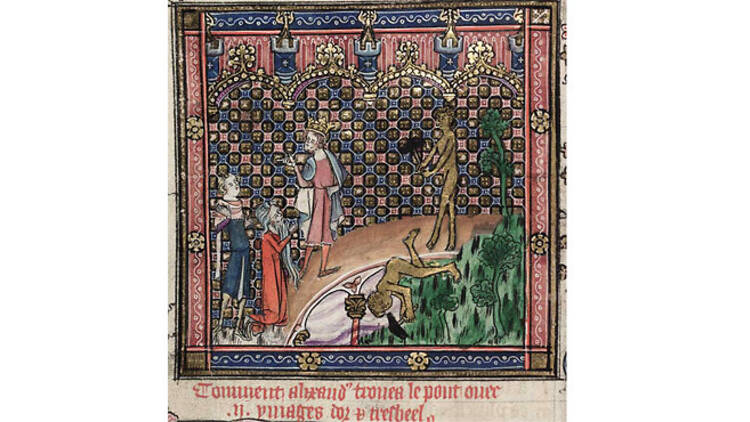 Comment alixand' trouea le pont ouec
.ij. ymages dor & tresbeel.